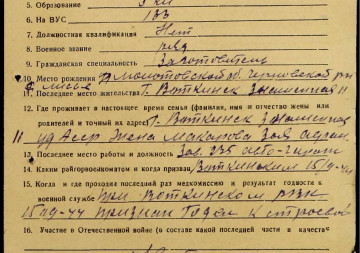 5. Образование 3 кл
6. На ВУС 133
7. Должностная квалификация Нет
8. Военное звание ряд
9. Гражданская специальность Заготовитель
10. Место рождения Молотовской об.
11. Последнее место жительства г. Воткинск
12. Где проживает в настоящее время семья (фамилия, имя и отчество жены или
родителей и точный их адрес) г. Воткинск
уд Асср Жена Макарова Зоя
13. Последнее место работы и должность Зав.
14. Каким райгорвоенкоматом и когда призван Воткинским 15/IV-44
15. Когда и где проходил последний раз медкомиссию и результат годности к
военной службе при Воткинском РВК
15/IV-44 признан годен к строевой
16. Участие в Отечественной войне (в составе какой последней части в качестве